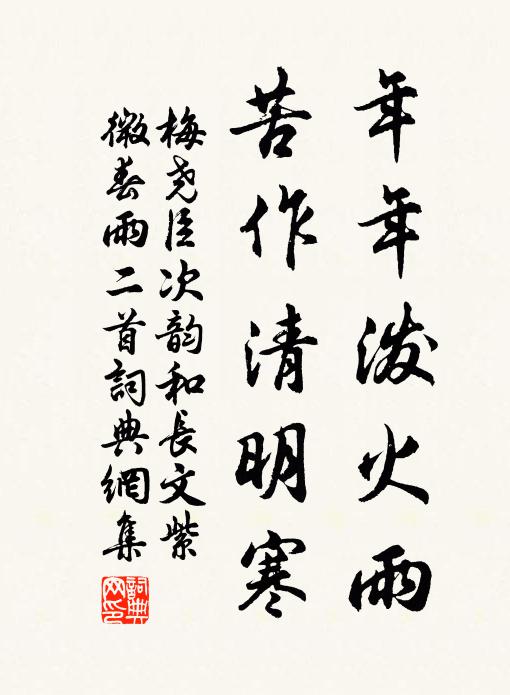 年年泼火雨
苦作清明寒
梅尧臣次韵和長文紫
微春雨二首詞典網集
詞典
网印